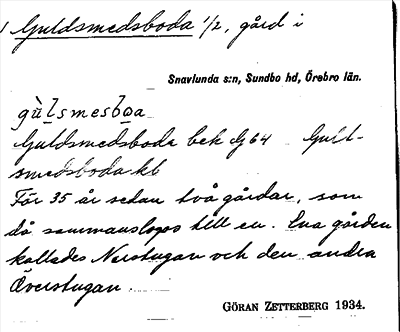 Guldsmedsboda 1/2, gård i
Snavlunda s:n, Sundbo hd, Örebro län.
gùlsmesbωa
Guldsmedsboda bek dJ 64 Gull-
smedsboda kb
För 35 år sedan två gårdar, som
då sammanslogos till en. Ena gården
kallades Norstugan och den andra
Överstugan.
GÖRAN ZETTERBERG 1934.